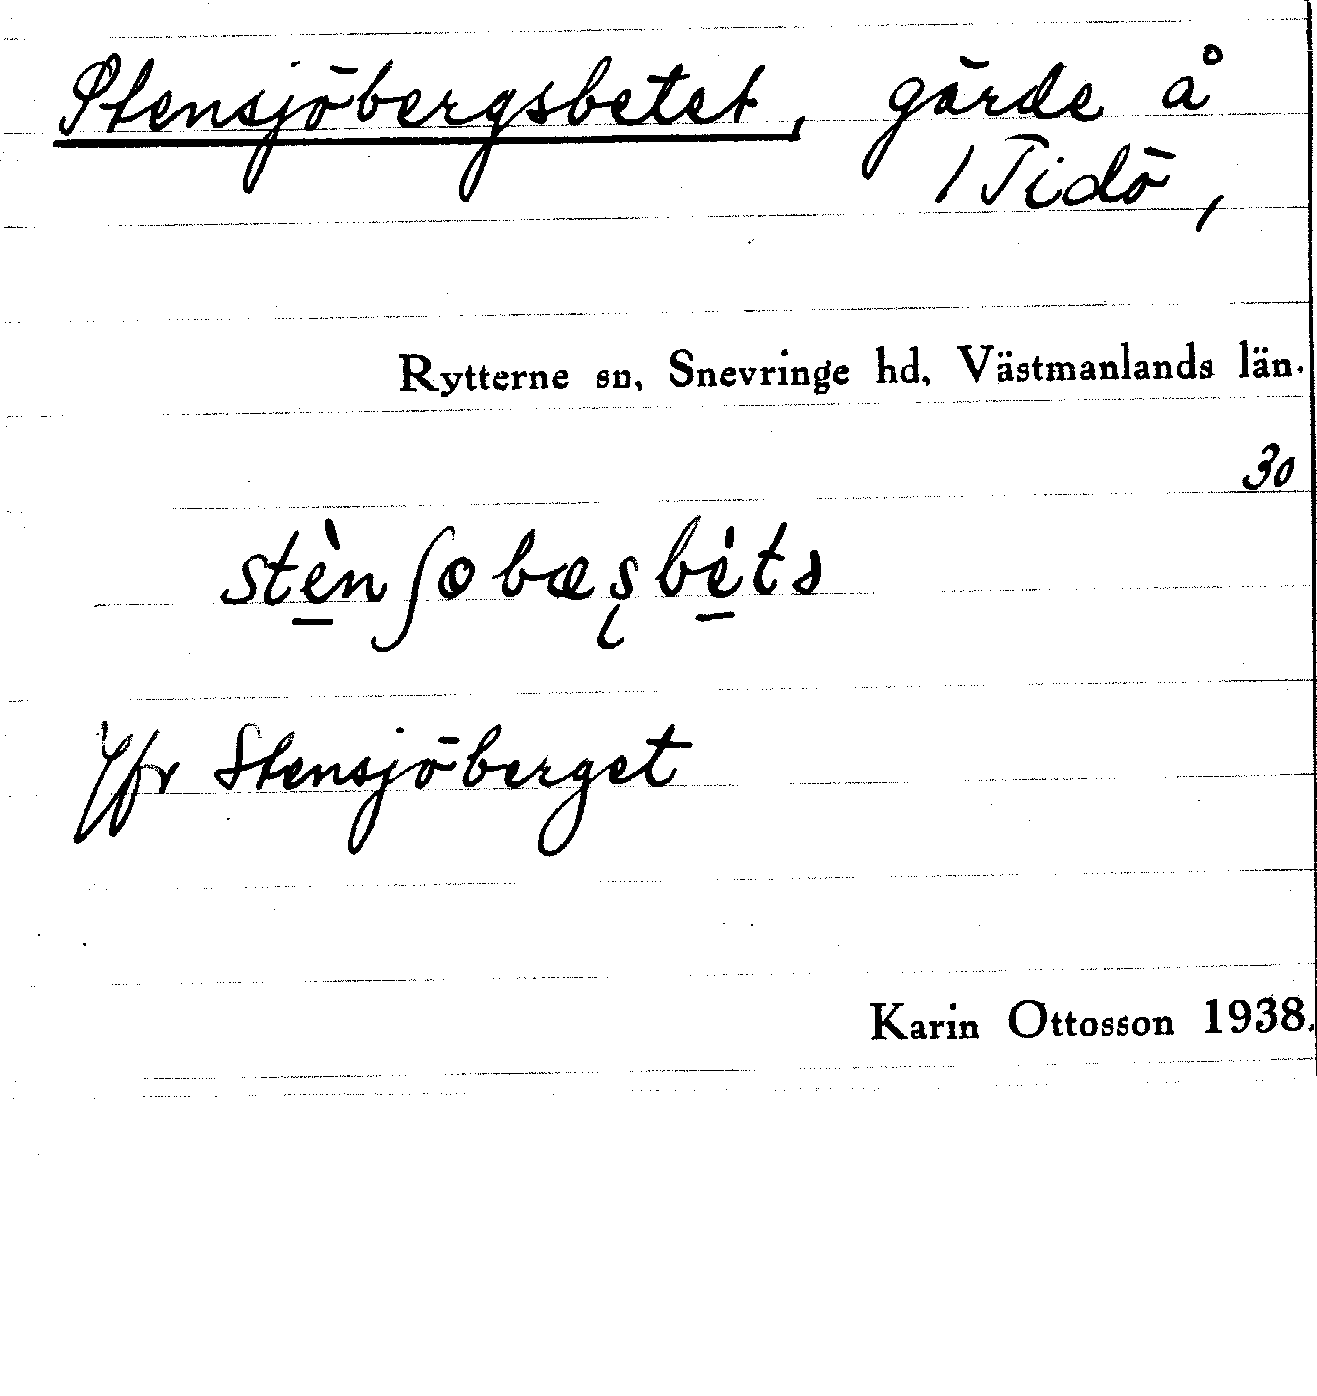 Stensjöbergsbetet, gärde å
/ Tidö,
Rytterne sn, Snevringe hd, Västmanlands län.
30
stè̲nʃobæʂbe̲̍tə
Jfr Stensjöberget
Karin Ottosson 1938.